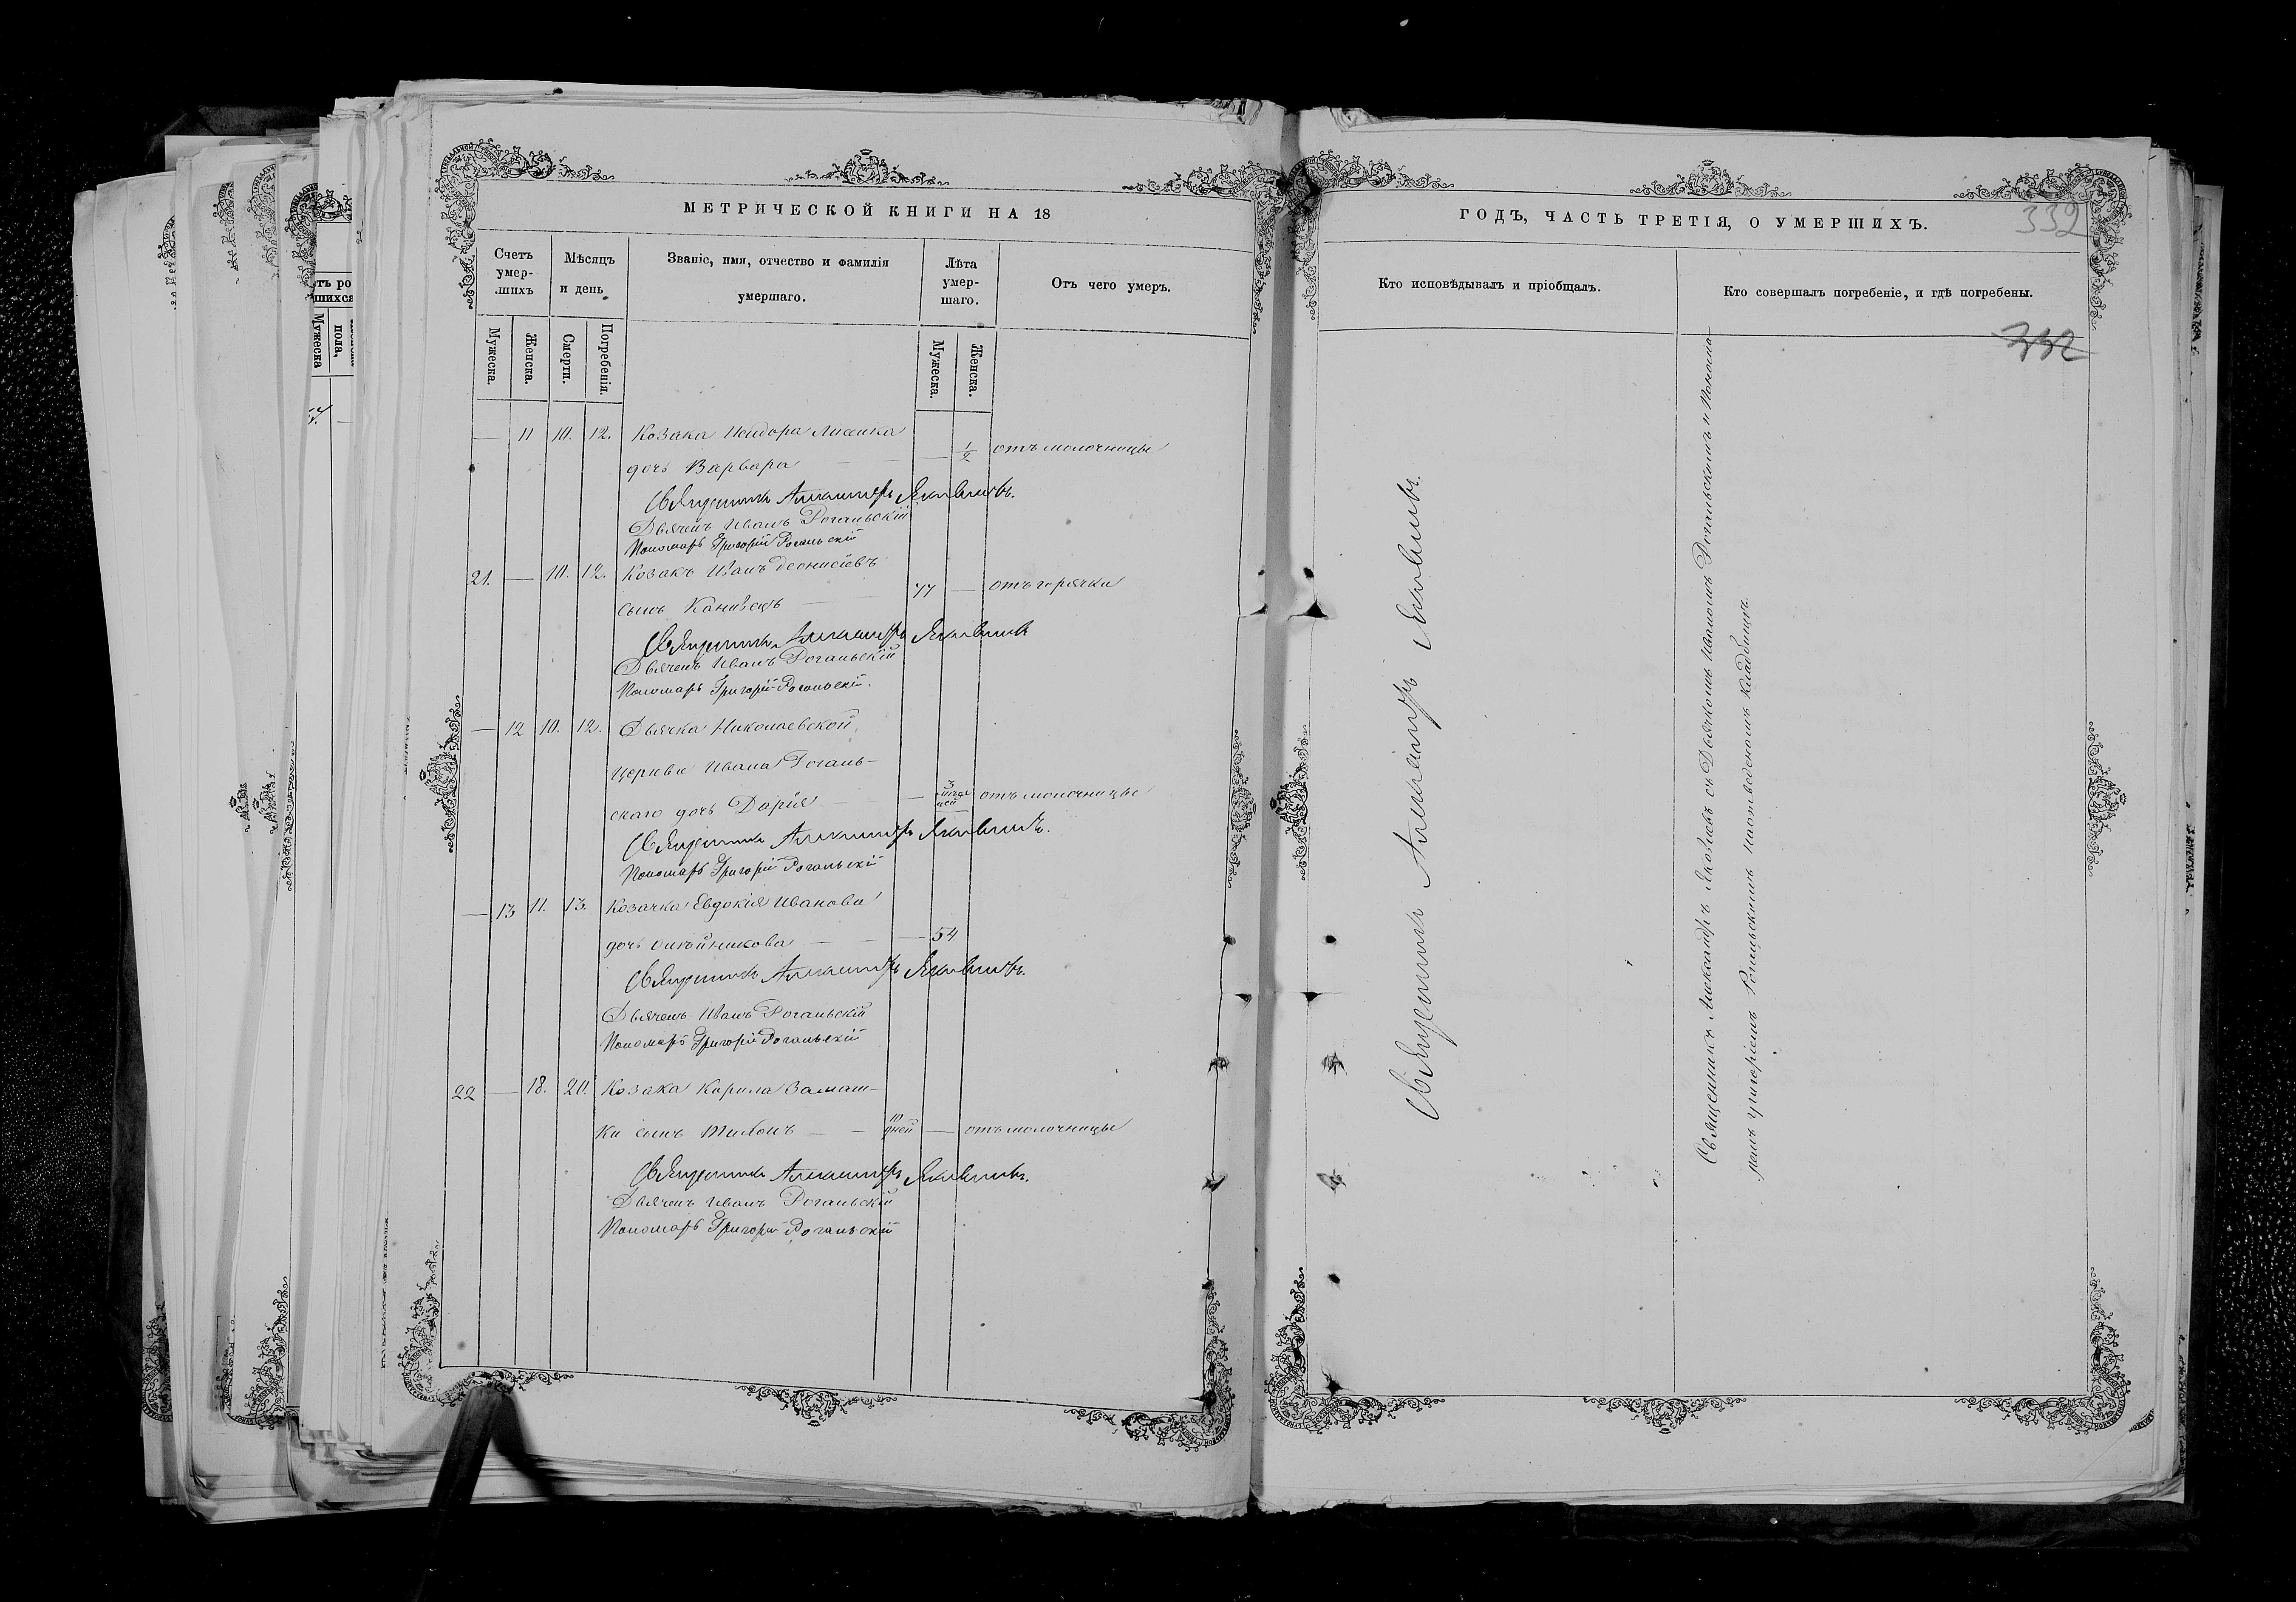 МЕТРИЧЕСКОЙ КНИГИ НА 18
Счетъ умер-шихъ
Мѣсяцъ и день
Званіе, имя, отчество и фамилія умершаго.
Лѣта умер-шаго.
Отъ чего умеръ.
Мужеска. Женска. Смерти. Погребенія. Мужеска. Женска.
— 11 10. 12. Козака Исидора Лисенка
дочь Варвара — — — 1/2 отъ молочницы
Священникъ Александръ Яковлевъ.
Дьячекъ Иванъ Рогальскій
Пономарь Григорій Рогальскій
21. — 10. 12. Козакъ Иванъ Деонисіевъ
сынъ Канивецъ — 77 — отъ горячки
Священникъ Александръ Яковлевъ
Дьячекъ Иванъ Рогальскій
Пономарь Григорій Рогальскій.
— 12 10. 12. Дьячка Николаевской
церкви Ивана Рогаль-
скаго дочь Дарія — — 3 отъ молочницы
Священникъ Александръ Яковлевъ.
Пономарь Григорій Рогальскій
— 13 11. 13. Козачка Евдокія Иванова
дочь Олѣйникова — — — 54
Священникъ Александръ Яковлевъ.
Дьячекъ Иванъ Рогальскій
Пономарь Григорій Рогальскій
22 — 18. 20. Козака Кирила
сынъ — — 10 дней — отъ молочницы
Священникъ Александръ Яковлевъ.
Дьячекъ Иванъ Рогальскій
Пономарь Григорій Рогальскій
ГОДЪ, ЧАСТЬ ТРЕТІЯ, О УМЕРШИХЪ.
332
Кто исповѣдывалъ и пріобщалъ.
Кто совершалъ погребеніе, и гдѣ погребены.
332
Священникъ Александръ Яковлевъ.
Священникъ Александръ Яковлевъ съ Дьячкомъ Иваномъ Рогальскимъ и Понома-
ремъ Григоріемъ Рогальскимъ на кладбищѣ.